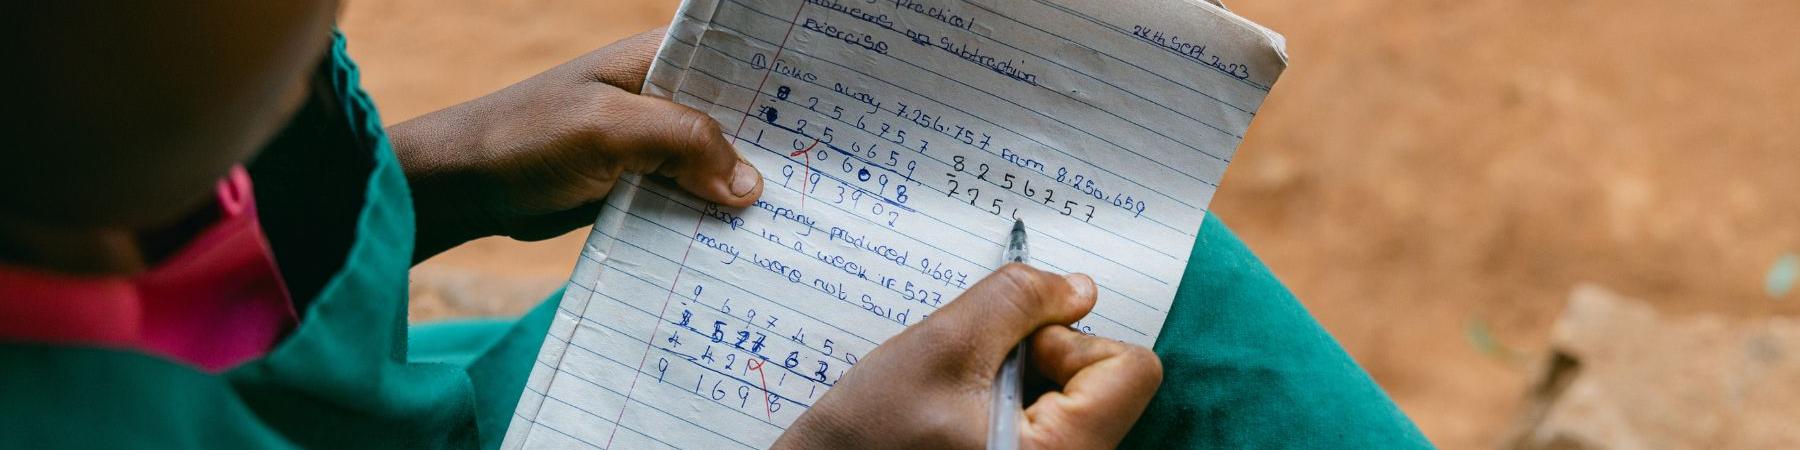 practical
Sept 2023
problems on subtraction
exercise
① Take away 7,256,757 from 8,250,659
8 2 5 6 7 5 7
7 2 5 0 6 5 9
1 0 0 6 0 9 8
9 9 3 9 0 2
8 2 5 6 7 5 7
- 7 2 5
company produced 9,697
in a week if 527
many were not sold
9 6 9 7 4 5 0
5 2 7 6 3
4 4 2 1 1 1
9 1 6 9 8